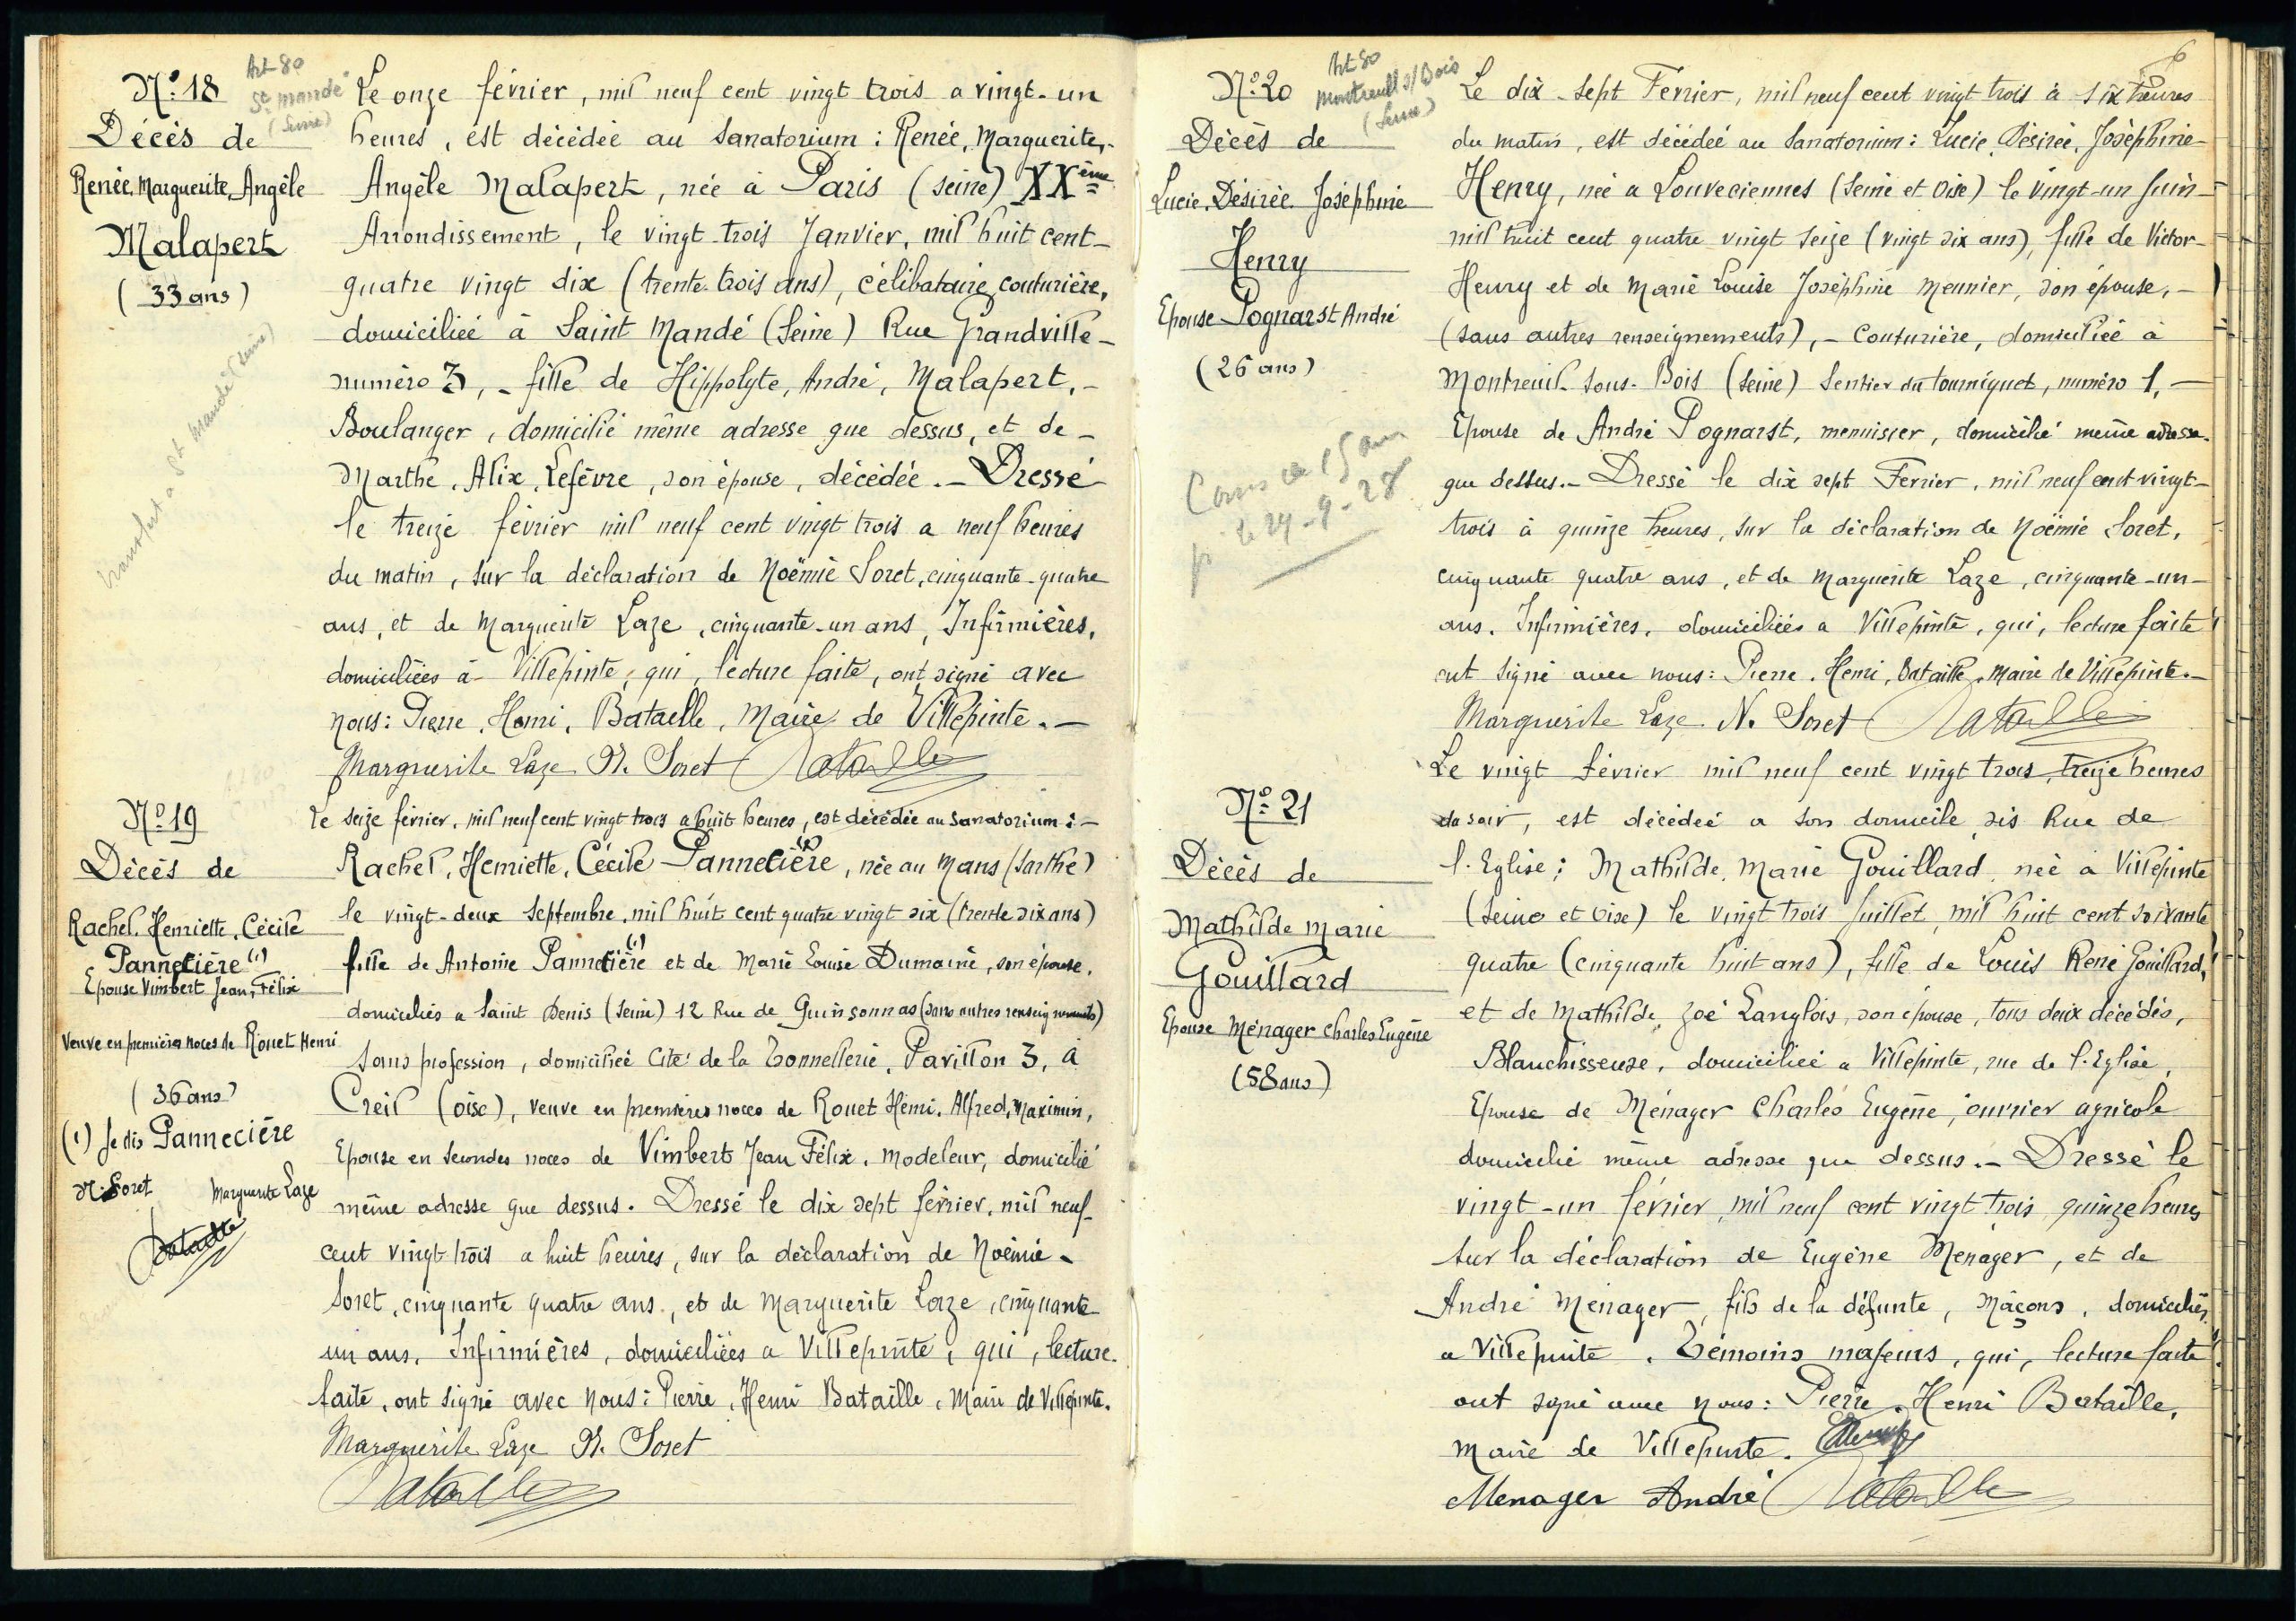 N° 18
Art 80
St Mandé
(Seine)
Décès de
Renée, Marguerite, Angèle
Malapert
(33 ans)
transfert à St Mandé (Seine)
Le onze février, mil neuf cent vingt trois a vingt-un
heures, est décédée au Sanatorium : Renée, Marguerite,-
Angèle Malapert, née à Paris (Seine) XXème
Arrondissement, le vingt-trois Janvier, mil huit cent-
quatre vingt dix (trente-trois ans), célibataire, couturière,
domiciliée à Saint Mandé (Seine) Rue Grandville-
numéro 3,- fille de Hippolyte, André, Malapert,-
Boulanger, domicilié même adresse que dessus, et de-
Marthe, Alix, Lefèvre, son épouse, décédée.- Dressé
le treize février mil neuf cent vingt trois a neuf heures
du matin, sur la déclaration de Noëmie Soret, cinquante-quatre
ans, et de Marguerite Laze, cinquante-un ans, Infirmières,
domiciliées à Villepinte, qui, lecture faite, ont signé avec
nous : Pierre, Henri, Bataille, Maire de Villepinte.-
Marguerite Laze N. Soret Bataille
N° 19
Décès de
Rachel, Henriette, Cécile
Pannetière (1)
Epouse Vimbert Jean, Félix
Veuve en premières noces de Rouet Henri
(36 ans)
(1) Je dis Pannecière
N. Soret Marguerite Laze
Bataille
Le seize février, mil neuf cent vingt trois a huit heures, est décédée au Sanatorium :-
Rachel, Henriette, Cécile Pannetière (1), née au Mans (Sarthe)
le vingt-deux Septembre, mil huit cent quatre vingt six (trente six ans)
fille de Antoine Pannetière (1) et de Marie Louise Dumaine, son épouse,
domiciliés a Saint Denis (Seine) 12 Rue de Guinsonnas (sans autres renseignements)
Sans profession, domiciliée Cité de la Tonnellerie, Pavillon 3, à
Creil (oise), veuve en premières noces de Rouet Henri, Alfred, Maximin,
Epouse en secondes noces de Vimbert Jean Félix, modeleur, domicilié
même adresse que dessus. Dressé le dix sept février, mil neuf-
cent vingt-trois a huit heures, sur la déclaration de Noëmie-
Soret, cinquante quatre ans, et de Marguerite Laze, cinquante
un ans, Infirmières, domiciliées a Villepinte, qui, lecture
faite, ont signé avec nous : Pierre, Henri Bataille, Maire de Villepinte.
Marguerite Laze N. Soret
Bataille
6
N° 20
Art 80
Montreuil s/Bois
(Seine)
Décès de
Lucie, Désirée, Joséphine
Henry
Epouse Pognarst André
(26 ans)
le 24-9-28
Le dix-sept Février, mil neuf cent vingt trois à six heures
du matin, est décédée au Sanatorium : Lucie, Désirée, Joséphine-
Henry, née a Louveciennes (Seine et Oise) le vingt-un Juin-
mil huit cent quatre vingt seize (vingt six ans), fille de Victor-
Henry et de Marie Louise Joséphine Meunier, son épouse,-
(sans autres renseignements),- Couturière, domiciliée à
Montreuil-Sous-Bois (Seine) Sentier du Tourniquet, numéro 1,-
Epouse de André Pognarst, menuisier, domicilié même adresse
que dessus.- Dressé le dix sept Février, mil neuf cent vingt-
trois à quinze heures, sur la déclaration de Noëmie Soret,
cinquante quatre ans, et de Marguerite Laze, cinquante-un-
ans, Infirmières, domiciliées a Villepinte, qui, lecture faite
ont signé avec nous : Pierre, Henri, Bataille, Maire de Villepinte.-
Marguerite Laze N. Soret Bataille
N° 21
Décès de
Mathilde Marie
Gouillard
Epouse Ménager Charles Eugène
(58 ans)
Le vingt Février mil neuf cent vingt trois, treize heures
du soir, est décédée a son domicile, sis Rue de
l'Eglise : Mathilde, Marie Gouillard, née à Villepinte
(Seine et Oise) le vingt trois Juillet, mil huit cent soixante
quatre (cinquante huit ans), fille de Louis René Gouillard,
et de Mathilde, Zoé Langlois, son épouse, tous deux décédés,
Blanchisseuse, domiciliée a Villepinte, rue de l'Eglise,
Epouse de Ménager Charles Eugène, ouvrier agricole
domicilié même adresse que dessus.- Dressé le
vingt-un février, mil neuf cent vingt trois, quinze heures
sur la déclaration de Eugène Menager, et de
André Menager, fils de la défunte, Maçons, domiciliés
a Villepinte, Témoins majeurs, qui, lecture faite
ont signé avec nous : Pierre, Henri Bataille,
Maire de Villepinte.
Menager André Bataille